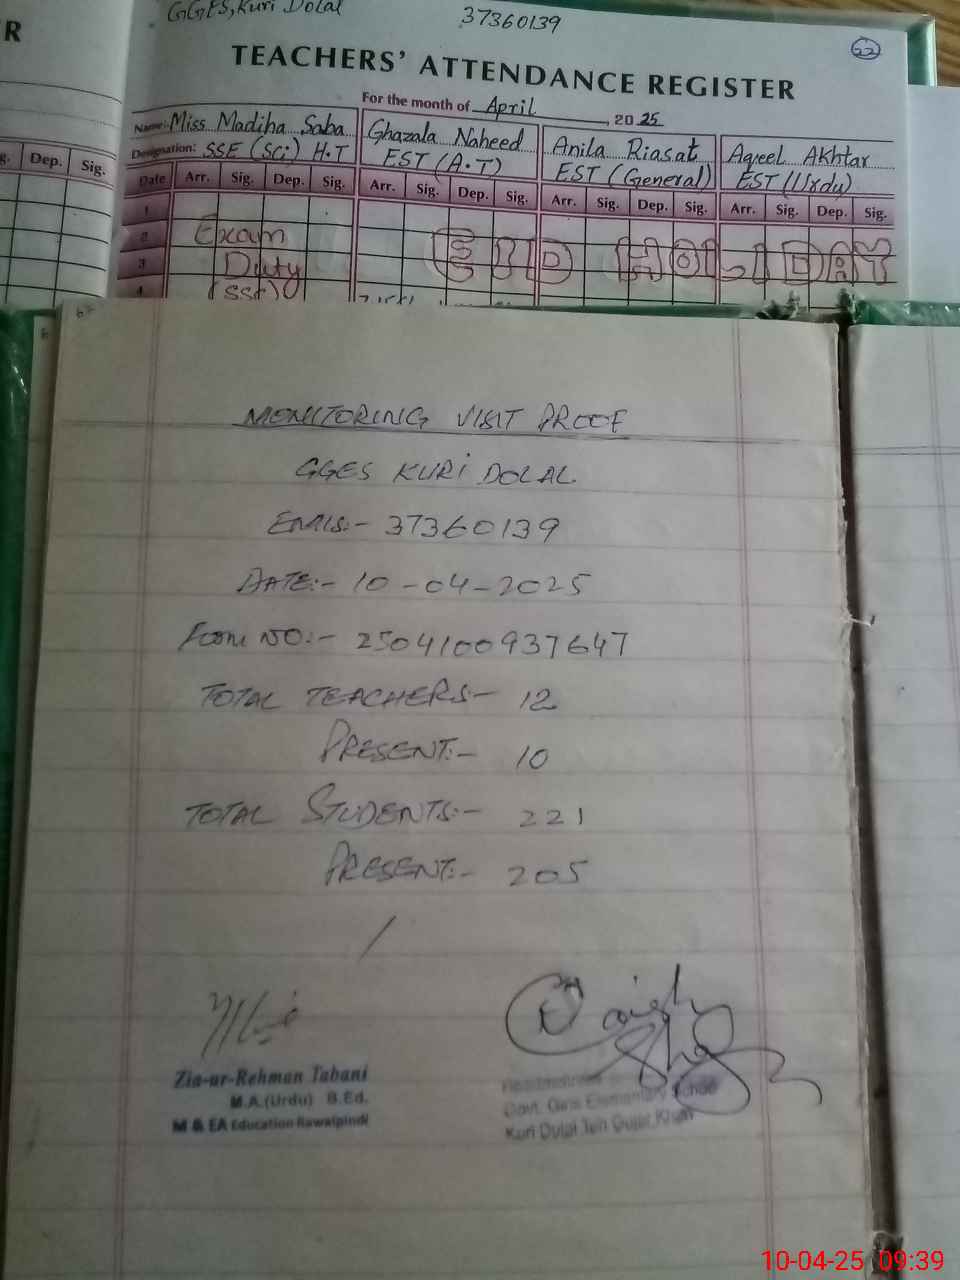 GGES, Kuri Dolal 37360139
62
R
TEACHERS' ATTENDANCE REGISTER
For the month of April, 2025
Name: Miss Madiha Saba Ghazala Naheed Anila Riasat Aqeel Akhtar
Designation: SSE (SCi) H.T EST (A.T) EST (General) EST (Urdu)
g. Dep. Sig. Date Arr. Sig. Dep. Sig. Arr. Sig. Dep. Sig. Arr. Sig. Dep. Sig. Arr. Sig. Dep. Sig.
1
2 Exam EID HOLIDAY
3 Duty
4 (SSC)
MONITORING VISIT PROOF
GGES KURI DOLAL
EMIS:- 37360139
DATE:- 10-04-2025
Form NO:- 2504100937647
TOTAL TEACHERS:- 12
PRESENT:- 10
TOTAL STUDENTS:- 221
PRESENT:- 205
Zia-ur-Rehman Tabani
M.A.(Urdu) B.Ed.
M & EA Education Rawalpindi
Headmistress
Govt. Girls Elementary School
Kuri Dulal Teh Gujar Khan
10-04-25 09:39